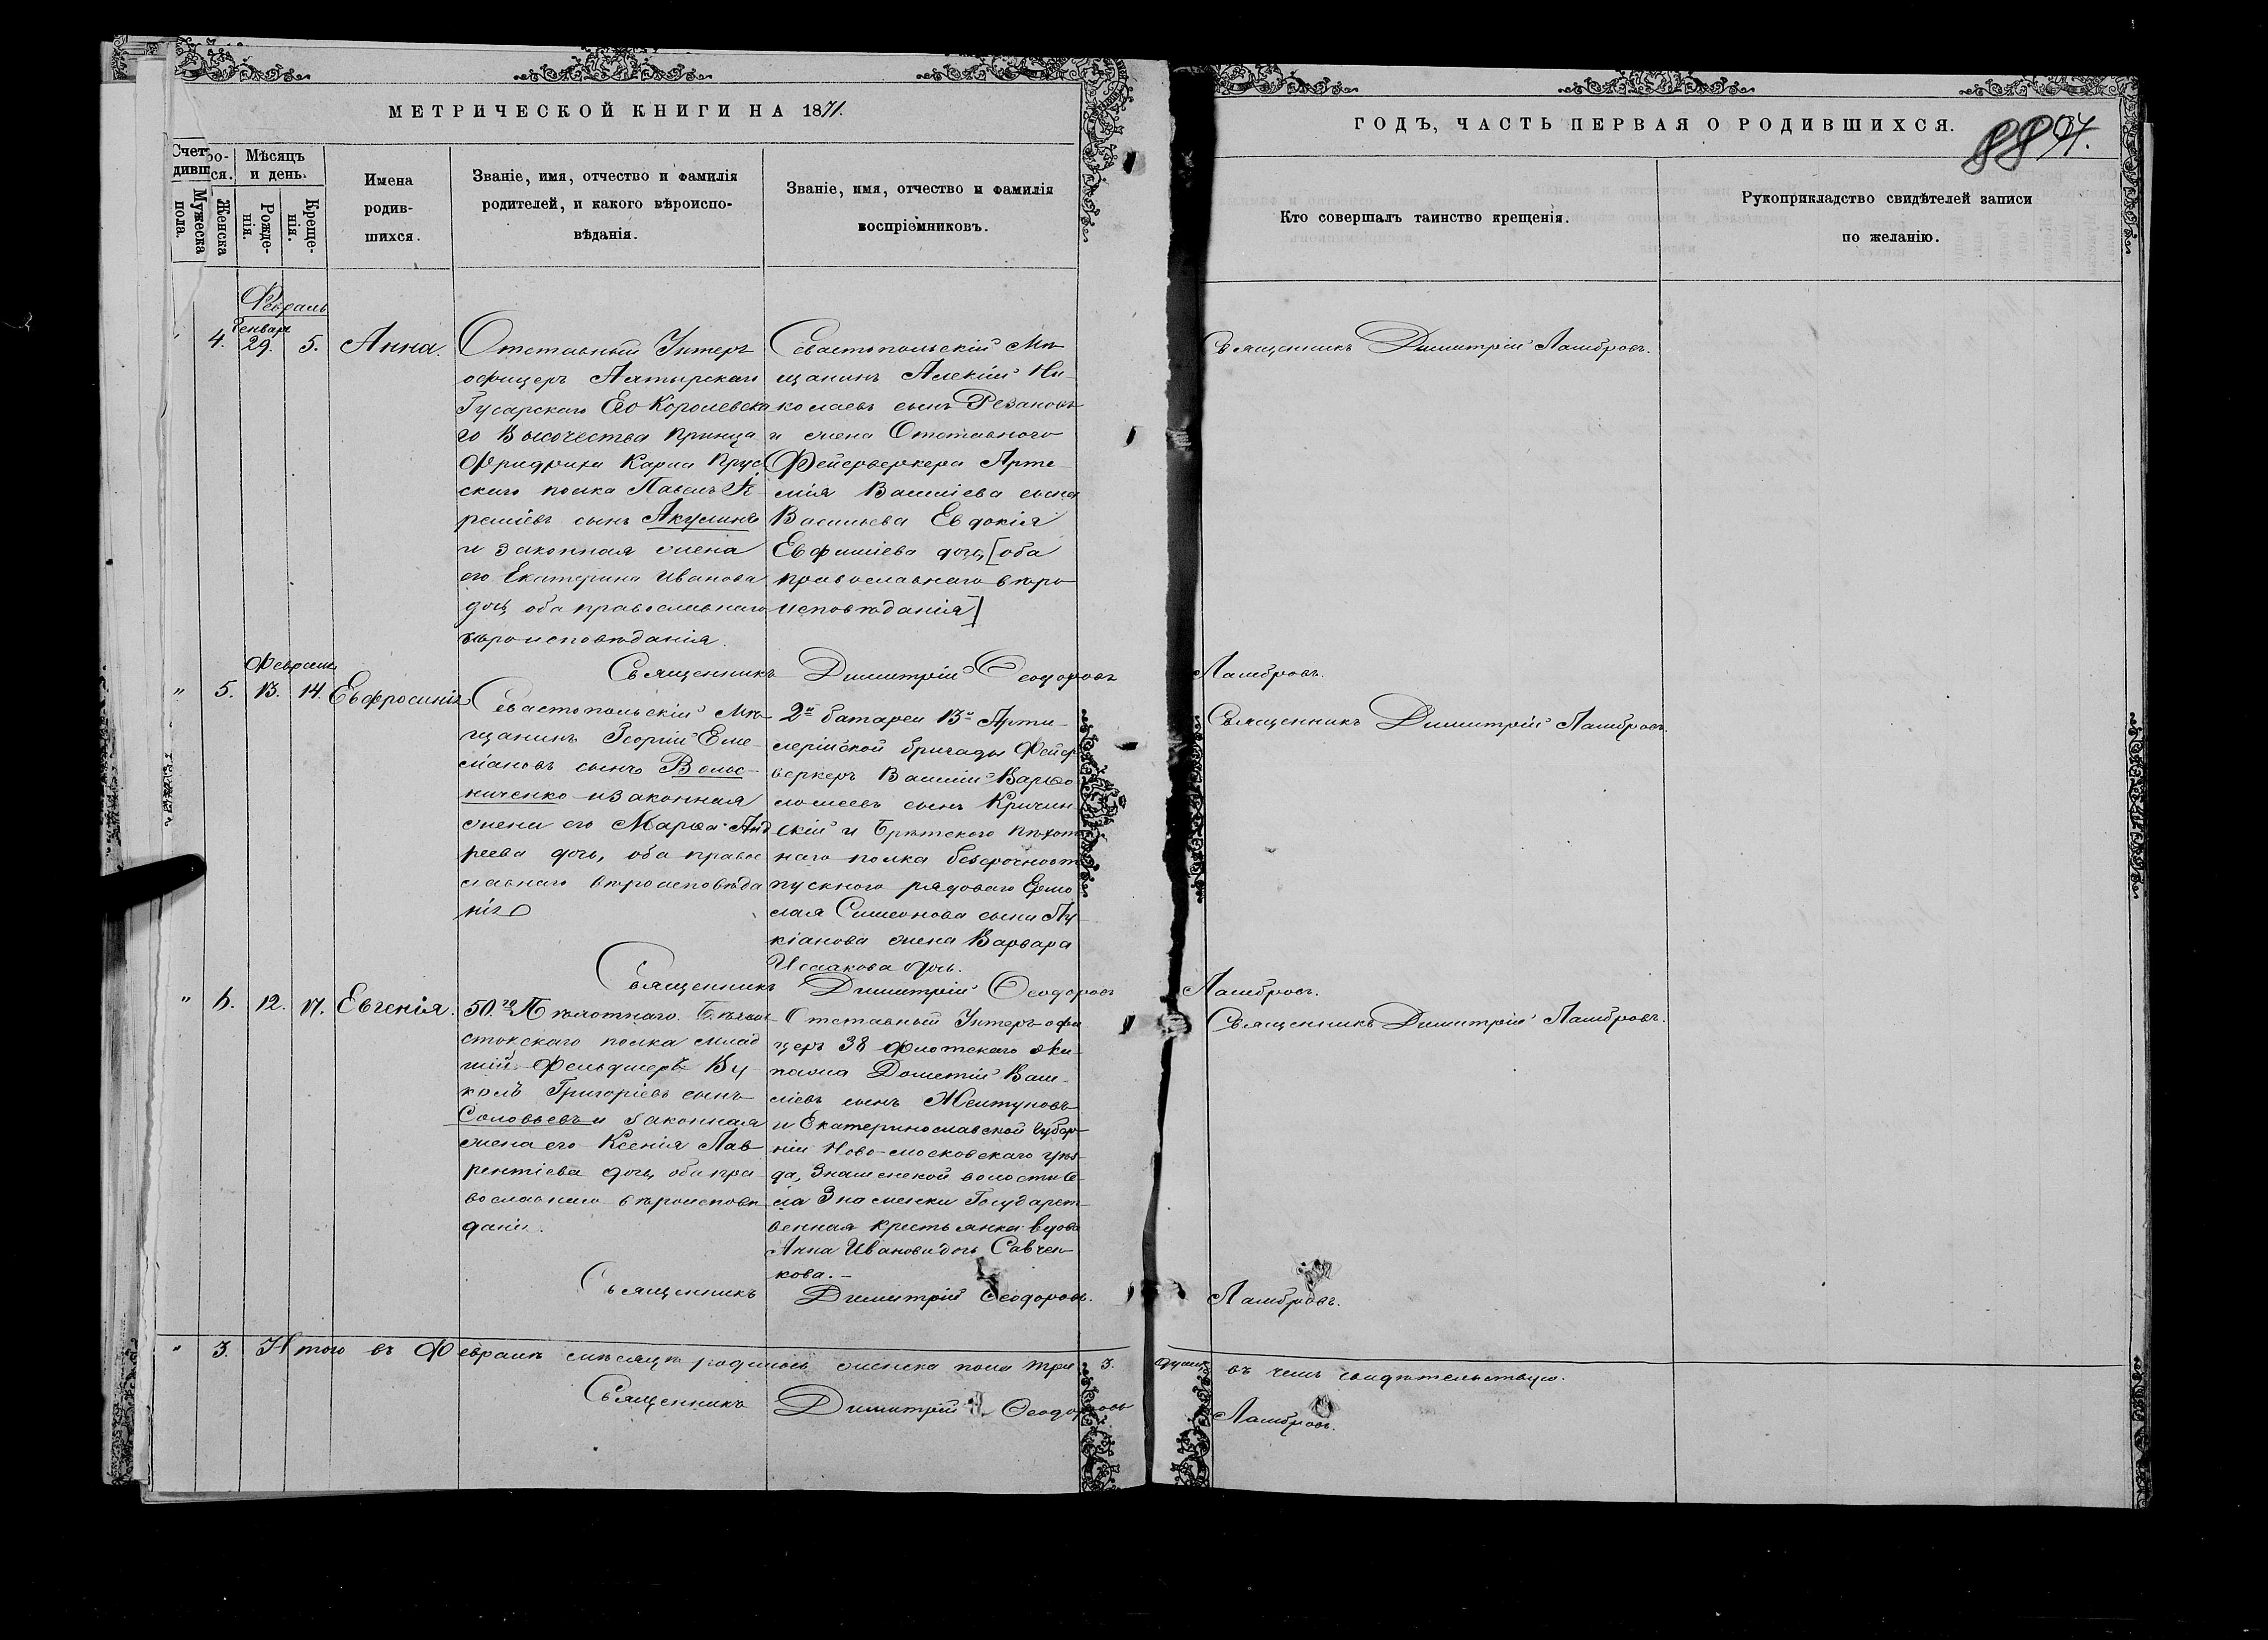 МЕТРИЧЕСКОЙ КНИГИ НА 1871.
ГОДЪ, ЧАСТЬ ПЕРВАЯ О РОДИВШИХСЯ.
94.
Счет ро-
дивш ся.
Мужеска пола.
Женска
Мѣсяцъ и день.
Рожде-нія.
Креще-нія.
Имена родив-шихся.
Званіе, имя, отчество и фамилія
родителей, и какого вѣроиспо-
вѣданія.
Званіе, имя, отчество и фамилія
воспріемниковъ.
Кто совершалъ таинство крещенія.
Рукоприкладство свидѣтелей записи
по желанію.
Февраль
Генваря
4. 29. 5. Анна.
Отставный Унтеръ
офицеръ Ахтырскаго
Гусарскаго Его Королевска
го Высочества Принца
Фридриха Карла Прус
скаго полка Павелъ
сынъ Акулинъ
и законная жена
его Екатерина Иванова
дочь, оба православнаго
вѣроисповѣданія.
Севастопольскій Мѣ-
щанинъ Алексій Ни-
колаевъ сынъ Резановъ
и жена Отставного
Фейерверкера Арте-
мія Васильева сына
Васильева Евдокія
Евфиміева дочь, [оба
православнаго вѣро
исповѣданія]
Священникъ Димитрій Ламбровъ.
Священникъ Димитрій Ѳеодоровъ Ламбровъ.
Февраль
" 5. 13. 14. Евфросинія
Севастопольскій Мѣ-
щанинъ Георгій Еме-
ліановъ сынъ
ниченко и законная
жена его Марѳа Анд
реева дочь, оба правос
лавнаго вѣроисповѣда
нія
2й батареи 13й Арти-
лерійской бригады Фейер
веркеръ Василій Варѳо
ломеевъ сынъ
скій и Брестского пѣхот
наго полка безсрочноот
пускного рядового Ермо
лая Симеонова сына Лу
кіанова жена Варвара
Исаакова дочь.
Священникъ Димитрій Ламбровъ.
Священникъ Димитрій Ѳеодоровъ Ламбровъ.
" 6. 12. 17. Евгенія.
50го Пѣхотнаго Бѣлос
токскаго полка млад
шій Фельдшеръ Ву
колъ Григоріевъ сынъ
Соловьевъ и законная
жена его Ксенія Лав
рентіева дочь, оба пра
вославнаго вѣроисповѣ
данія.
Отставный Унтеръ-офи
церъ 38 флотскаго эки-
пажа Дометій Васи-
ліевъ сынъ Желтуновъ
и Екатеринославской Губер-
ніи Ново-московскаго уѣз-
да, Знаменской волости се
ла Знаменки Государст
венная крестьянка вдова
Анна Иванова дочь Савчен-
кова. –
Священникъ Димитрій Ламбровъ.
Священникъ Димитрій Ѳеодоровъ. Ламбровъ.
" 3. Итого въ Февралѣ мѣсяцѣ родилось женска пола три 3. души, въ чемъ свидѣтельствую.
Священникъ Димитрій Ѳеодоровъ Ламбровъ.